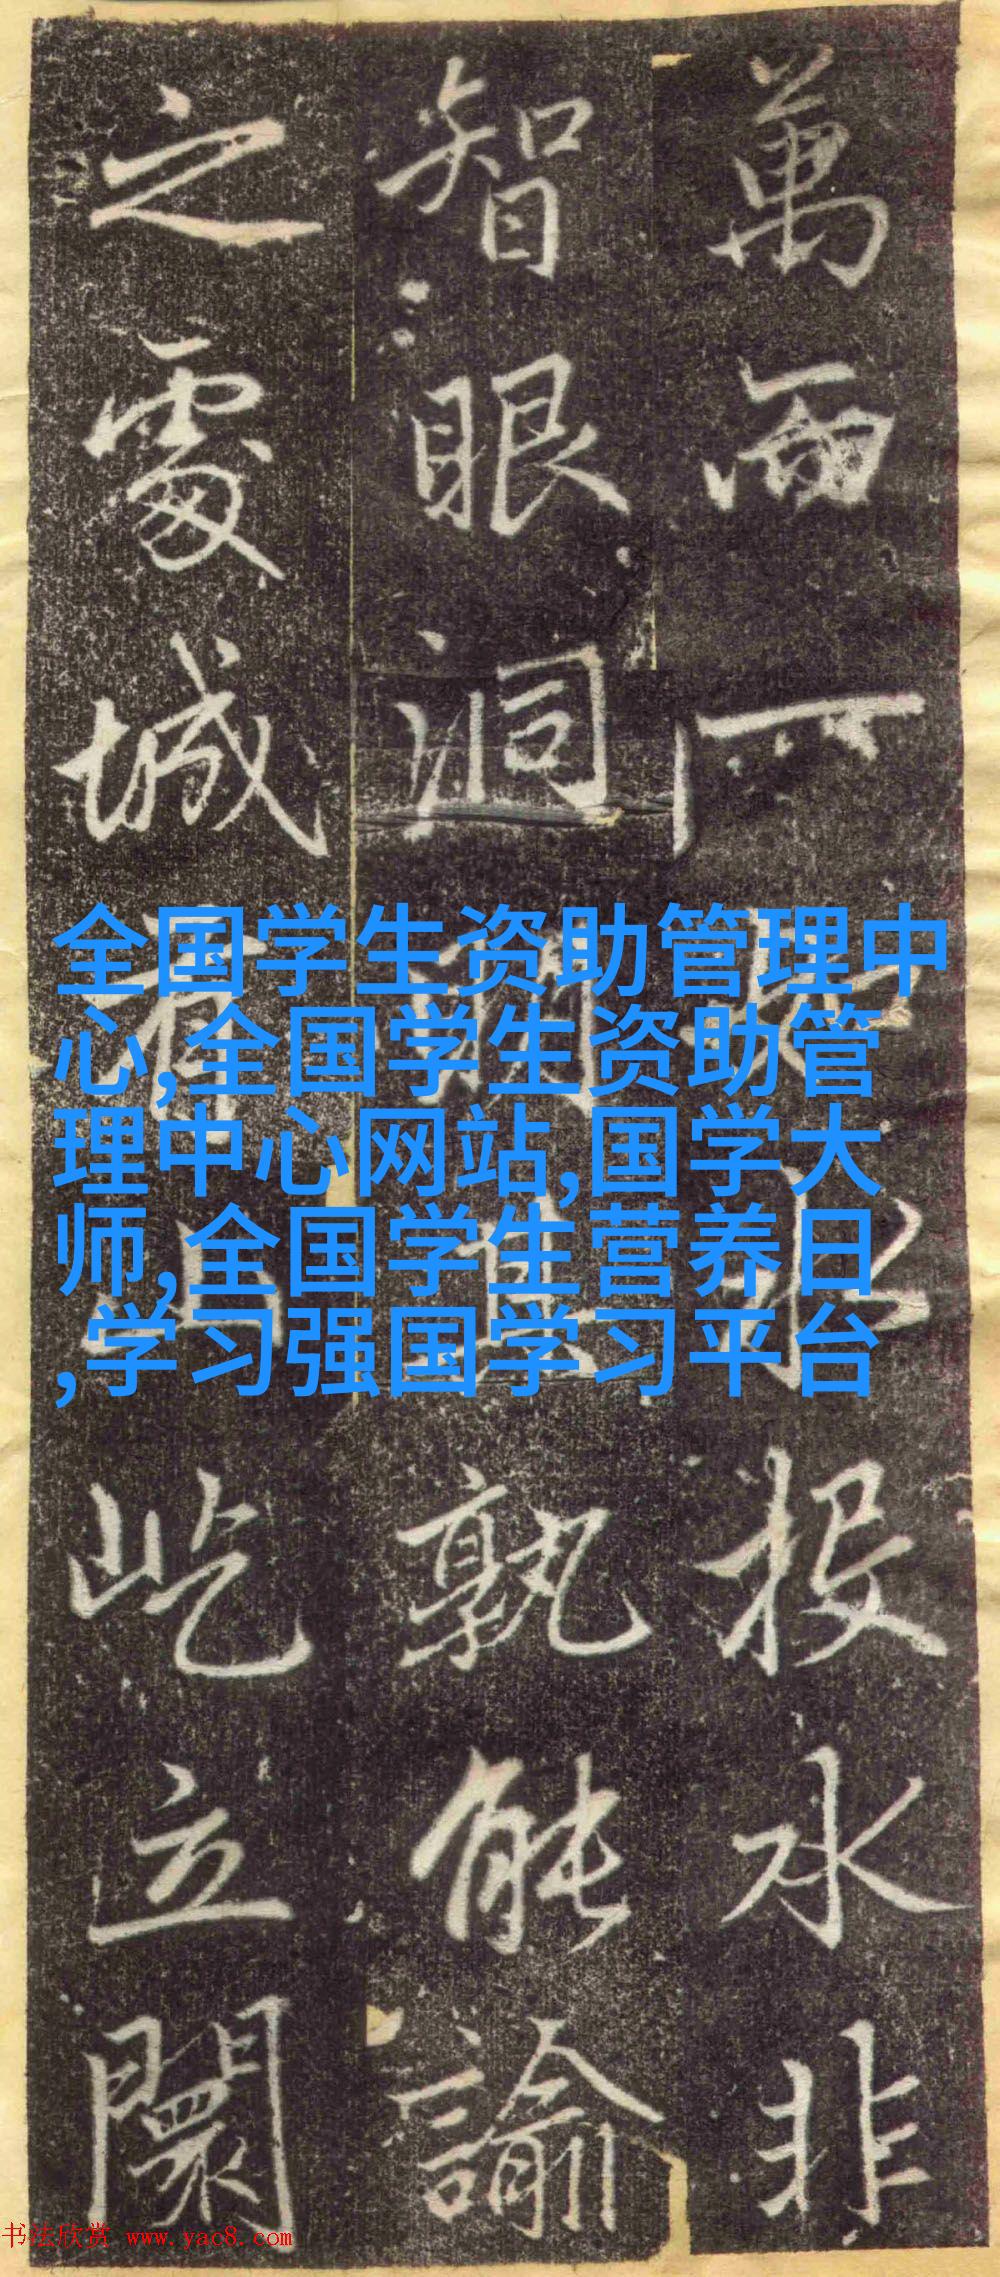 萬 投水非
智眼洞 孰能諭
之處城 屹立闤
全国学生资助管理中
心,全国学生资助管
理中心网站,国学大
师,全国学生营养日
,学习强国学习平台
书法欣赏 www.yac8.com